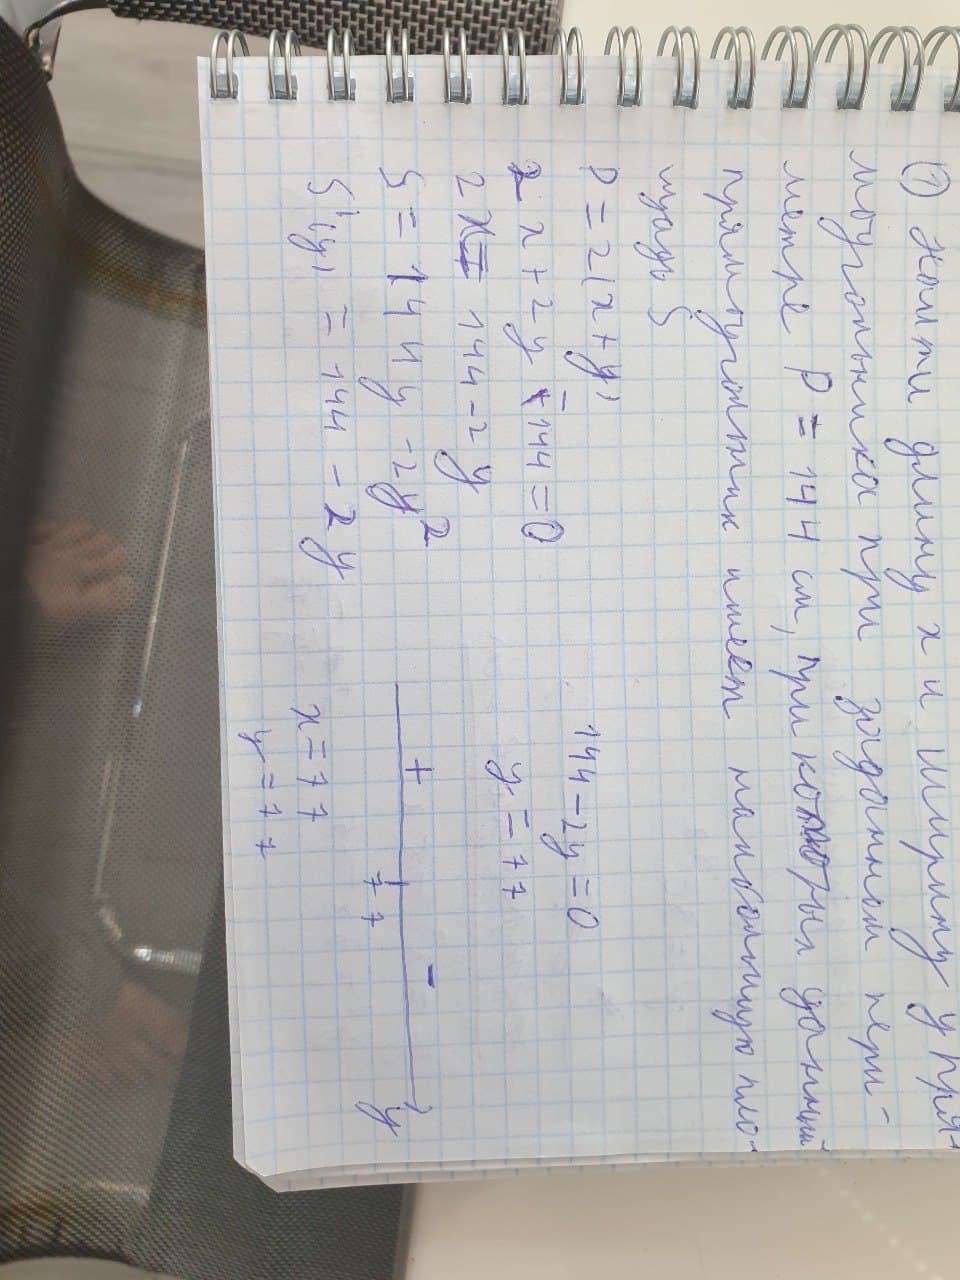 ① Найти длину x и ширину y пря-
моугольника при заданном пери-
метре P = 144 см, при которых данный
прямоугольник имеет наибольшую пло-
щадь S
P = 2(x+y)
2x + 2y - 144 = 0
2x = 144 - 2y
S = 144y - 2y²
S'(y) = 144 - 2y
144 - 2y = 0
y = 77
+ -
77 y
x = 77
y = 77